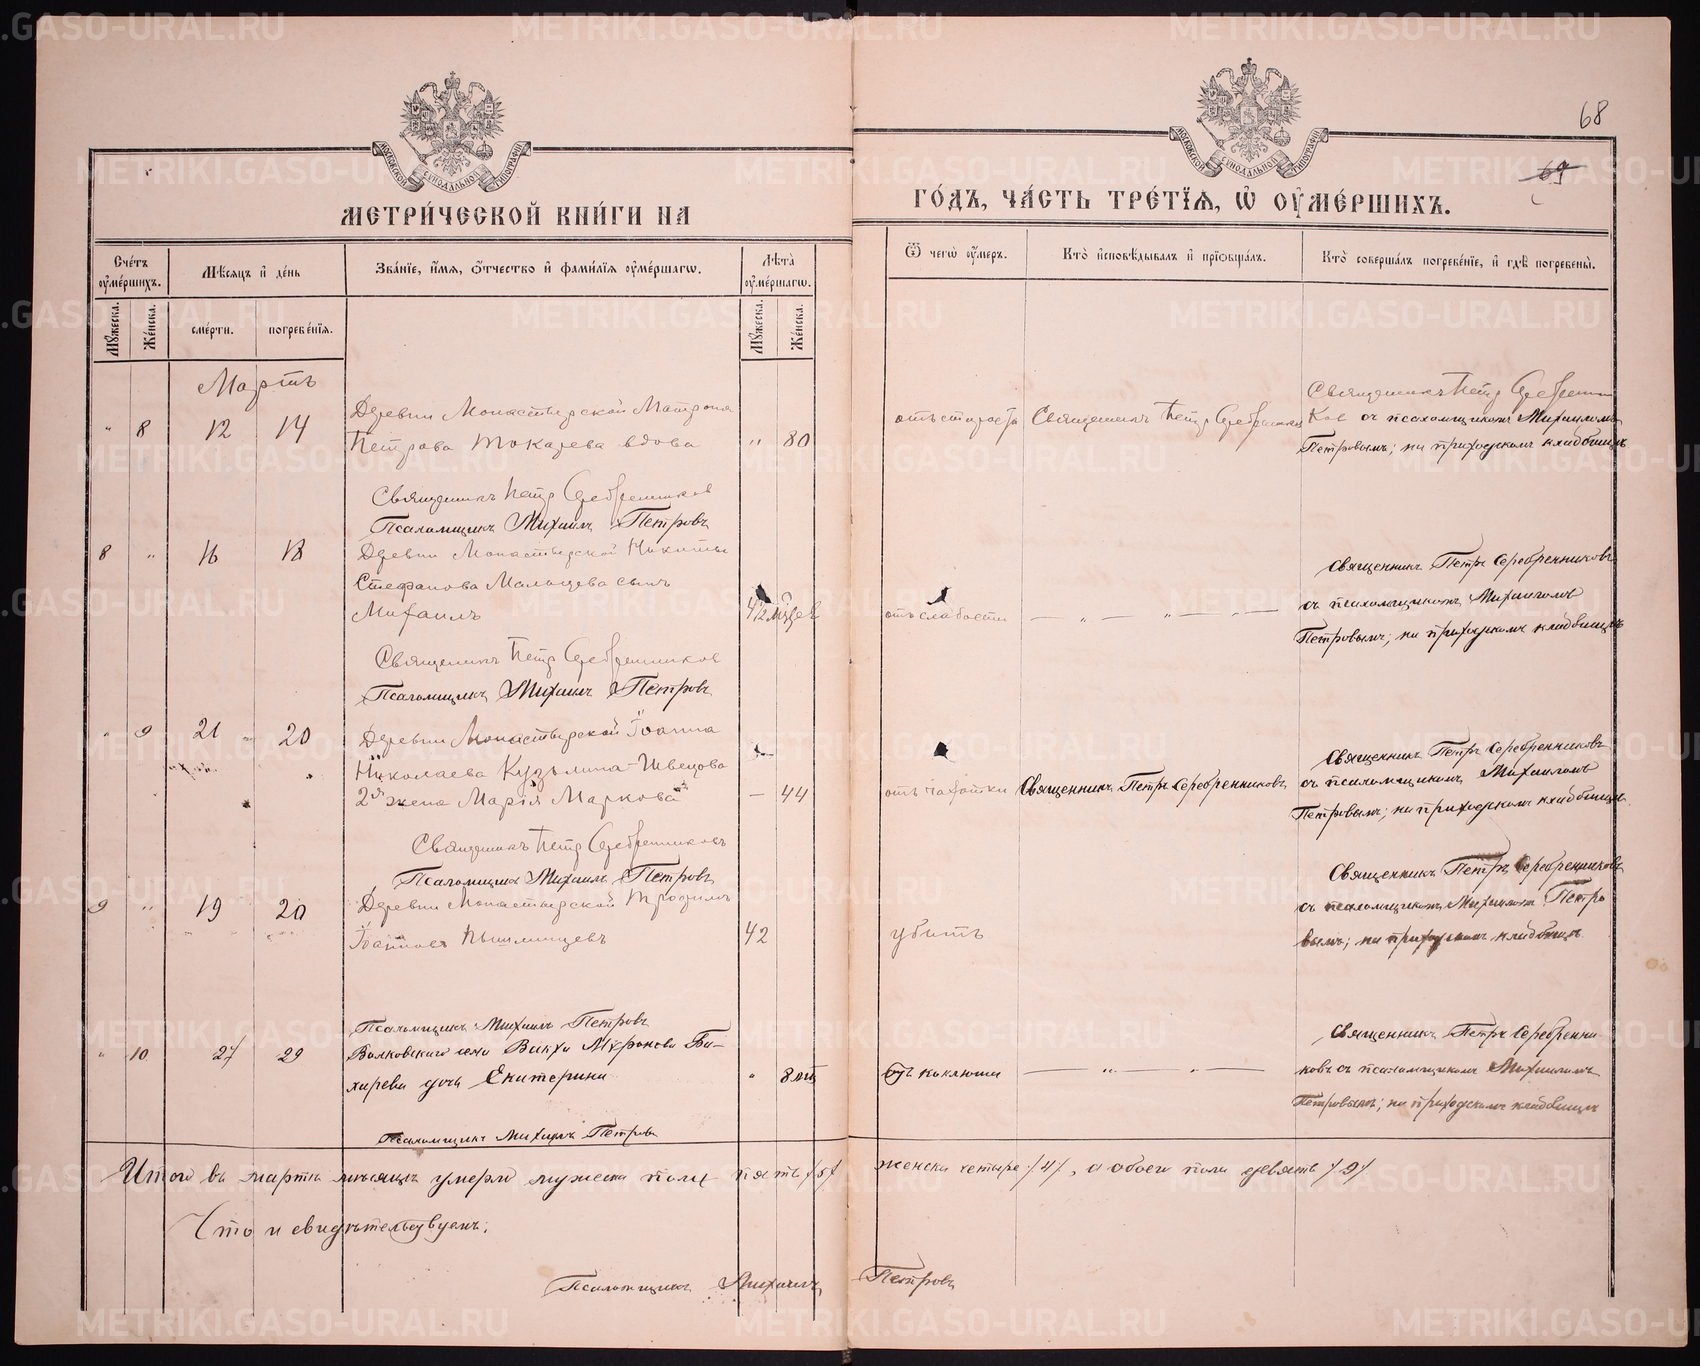 METRIKI.GASO-URAL.RU
68
69
МОСКОВСКОЙ СѴНОДАЛЬНОЙ ТИПОГРАФІИ
МОСКОВСКОЙ СѴНОДАЛЬНОЙ ТИПОГРАФІИ
МЕТРИ́ЧЕСКОЙ КНИ́ГИ НА ГО́ДЪ, ЧА́СТЬ ТРЕ́ТІѦ, Ѡ҆ ОУ҆МЕ́РШИХЪ.
Сче́тъ оу҆ме́ршихъ.
Мѣ́сѧцъ и҆ де́нь
Зва́нїе, и҆́мѧ, ѻ҆́тчество и҆ фами́лїѧ оу҆ме́ршагѡ.
Лѣ́та оу҆ме́ршагѡ.
Ѿ чегѡ̀ оу҆́меръ.
Кто̀ и҆сповѣ́дывалъ и҆ прїѡбща́лъ.
Кто̀ соверша́лъ погребе́нїе, и҆ гдѣ̀ погребены̀.
Мꙋ́жеска.
Же́нска.
сме́рти.
погребе́нїѧ.
Мꙋ́жеска.
Же́нска.
Мартъ
Деревни Монастырской Матрона
" 8 12 14 Петрова Токарева вдова " 80 отъ старости Священникъ Петръ Серебренниковъ
Священникъ Петръ Серебренни
ков съ псаломщикомъ Михаиломъ
Петровымъ; на приходскомъ кладбищѣ
Священникъ Петръ Серебренников
Псаломщикъ Михаилъ Петровъ
8 " 16 18 Деревни Монастырской Никиты
Стефанова Мальцева сынъ
Михаилъ отъ слабости — " — " —
Священникъ Петръ Серебренниковъ
съ псаломщикомъ Михаиломъ
Петровымъ; на приходскомъ кладбищѣ
Священникъ Петръ Серебренников
Псаломщикъ Михаилъ Петровъ
" 9 21 20 Деревни Монастырской Іоанна
Николаева Кузьмина-Швецова
2я жена Марія Маркова — 44 отъ чахотки Священникъ Петръ Серебренниковъ
Священникъ Петръ Серебренниковъ
съ псаломщикомъ Михаиломъ
Петровымъ; на приходскомъ кладбищѣ
Священникъ Петръ Серебренниковъ
Псаломщикъ Михаилъ Петровъ
9 " 19 20 Деревни Монастырской Трофимъ
Іоаннов Пышминцевъ 42 убитъ
Священникъ Петръ Серебренниковъ
съ псаломщикомъ Михаиломъ Петро
вымъ; на приходскомъ кладбищѣ
Псаломщикъ Михаилъ Петровъ
" 10 27 29 Волковскаго села Ба-
хирева дочь Екатерина " 8 отъ коклюша — " — " —
Священникъ Петръ Серебренни
ковъ съ псаломщикомъ Михаиломъ
Петровымъ; на приходскомъ кладбищѣ
Псаломщикъ Михаилъ Петровъ
Итого въ мартѣ мѣсяцѣ умерло мужеска пола пять /5/ женска четыре /4/, а обоего пола девять /9/
Что и свидѣтельствуемъ:
Псаломщикъ Михаилъ Петровъ